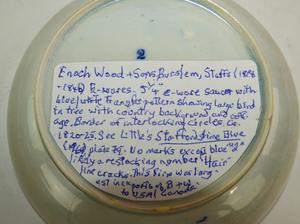 2
Enoch Wood + Sons, Burslem, Staffs (1818
-1846) E-wares. 5 3/4" e-ware saucer with
blue/white transfer pattern showing large bird
in tree with country background and cott-
age. Border of interlocking circles. Ca.
1820-25. See Little's Staffordshire Blue
(1969) plate 79. No marks except blue "2"
likely a restocking number. Hair-
line cracks. This firm was larg-
est in exports of B + W
to USA/Canada.